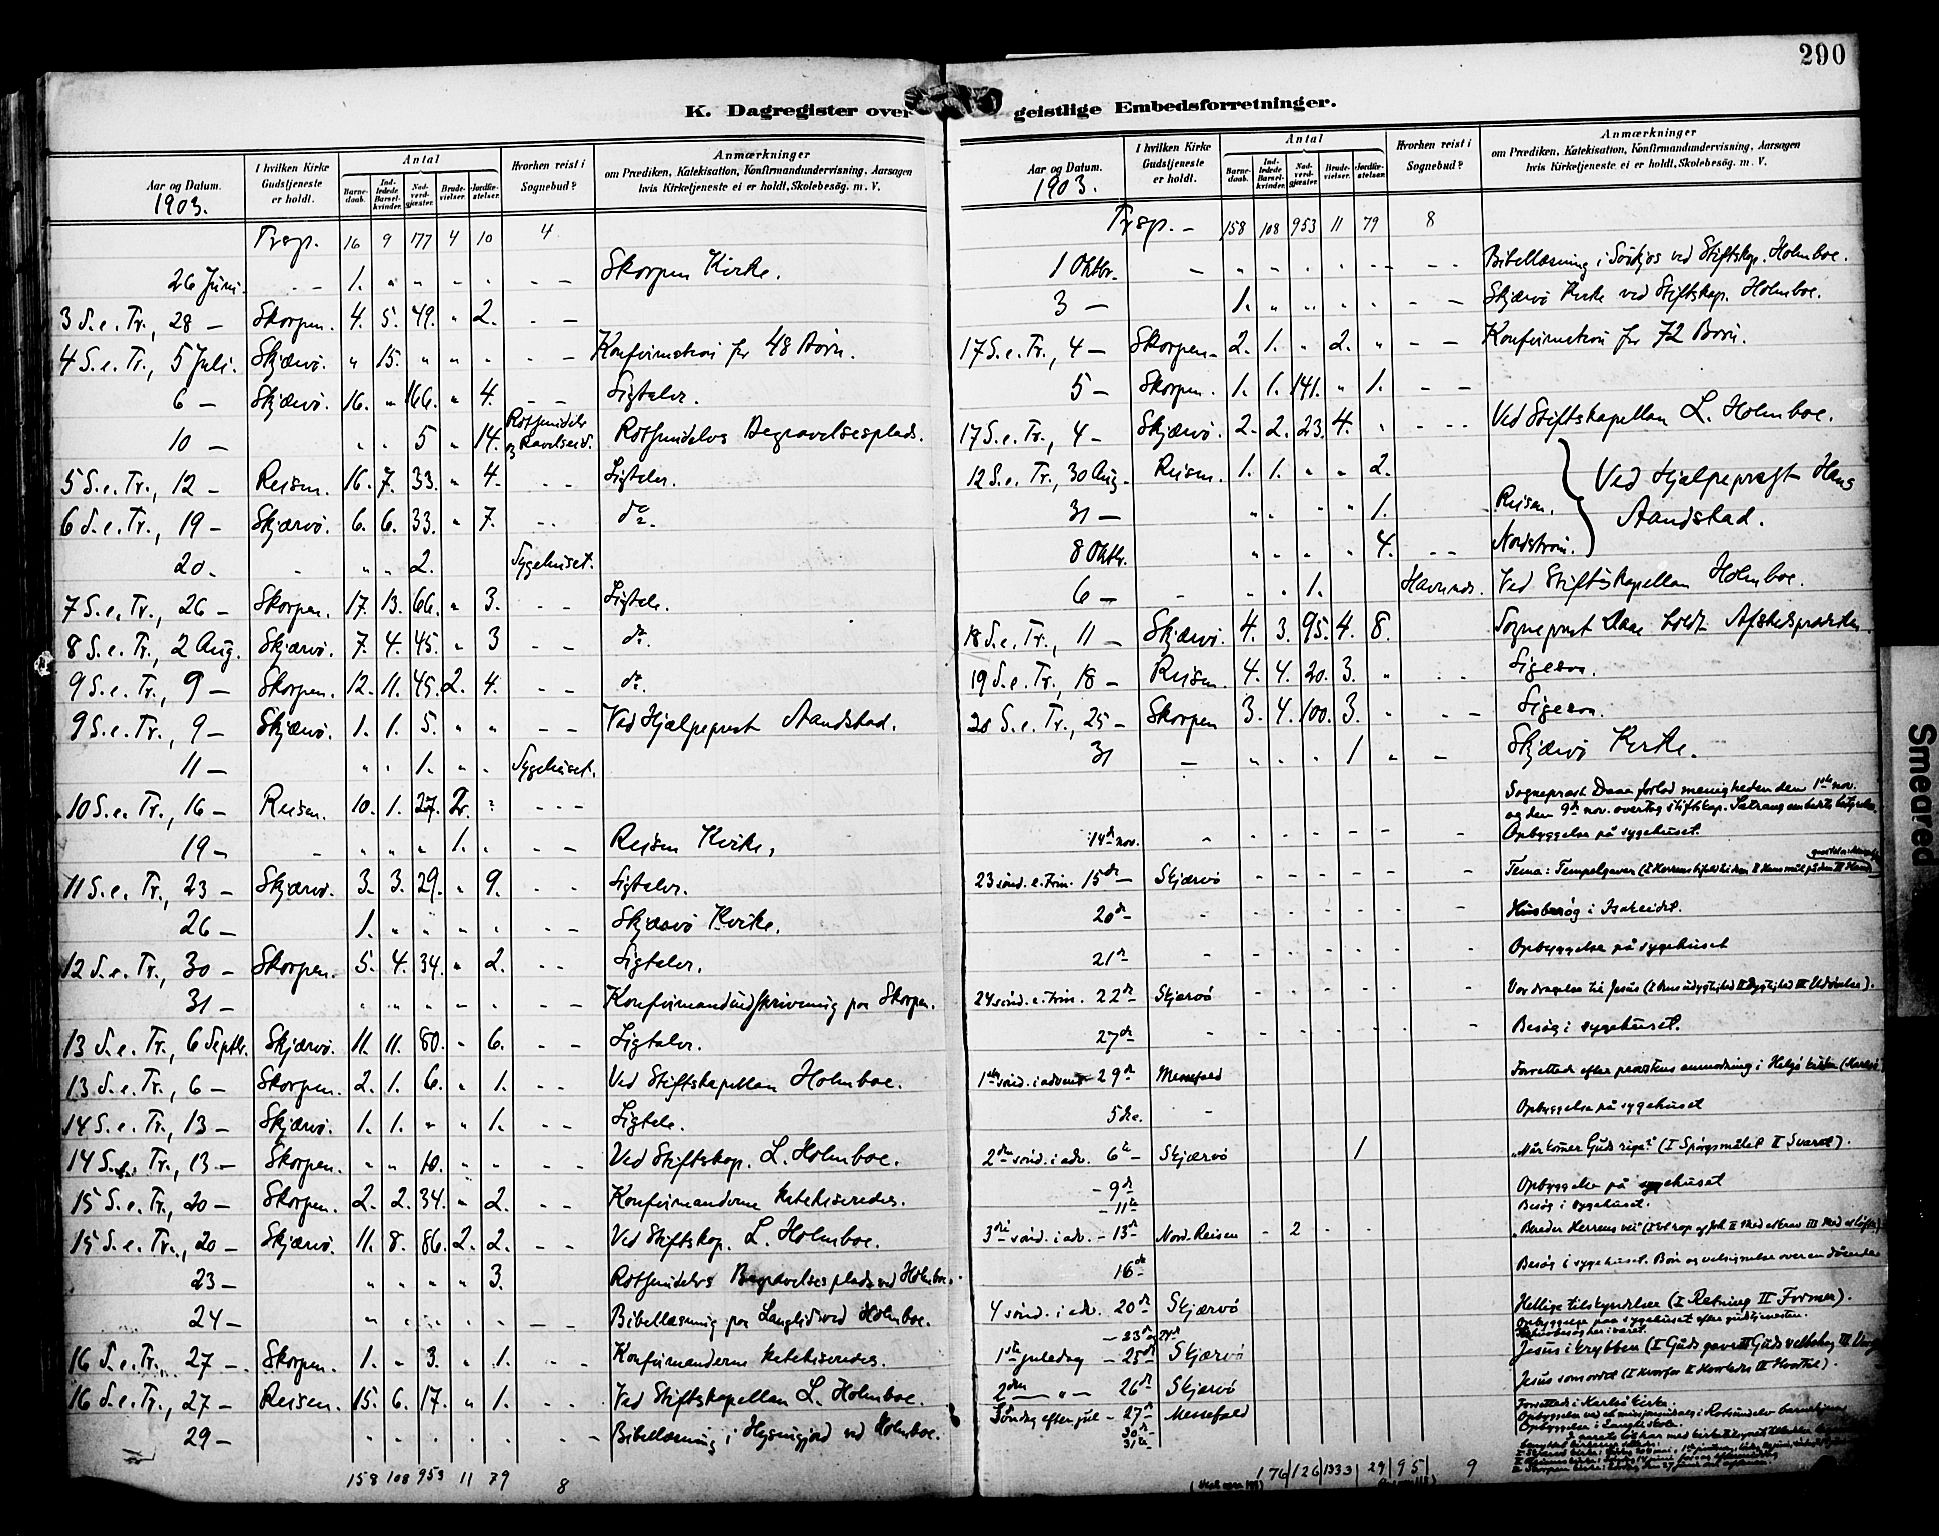 290
K. Dagregister over geistlige Embedsforretninger.
Aar og Datum. 1903.
I hvilken Kirke Gudstjeneste er holdt.
Antal
Barnedaab. Indledede Barselkvinder. Nadverdgjæster. Brudevielser. Jordfæstelser.
Hvorhen reist i Sognebud?
Anmærkninger
om Prædiken, Katekisation, Konfirmandundervisning, Aarsagen
hvis Kirketjeneste ei er holdt, Skolebesøg. m. V.
Trsp. 16 9 177 4 10 4
26 Juni. - - 1. " " - - - - Skorpen Kirke.
3 S. e. Tr., 28 - Skorpen. 4. 5. 49. " 2. - -
4 S. e. Tr., 5 Juli. Skjærvö. " 15. " " " - - Konfirmation for 48 Børn.
6 - Skjærvö. 16. " 166. " 4. - - Ligtaler.
10 - " " 5 " 14. Rotsundelv og Ravelseid. Rotsundelvs Begravelsesplads.
5 S. e. Tr., 12 - Reisen. 16. 7. 33. " 4. - - Ligtaler.
6 S. e. Tr., 19 - Skjærvö. 6. 6. 33. " 7. - - do.
20. - " " 2. Sygehuset.
7 S. e. Tr., 26 - Skorpen. 17. 13. 66. " 3. - - Ligtale.
8 S. e. Tr., 2 Aug. Skjærvö. 7. 4. 45. " 3 - - do.
9 S. e. Tr., 9 - Skorpen. 12. 11. 45. 2. 4. - - do.
9 S. e. Tr., 9 - Skjærvö. 1. 1. 5. " " - - Ved Hjælpeprest Aandstad.
11 - " " 1. " " Sygehuset.
10 S. e. Tr., 16 - Reisen. 10. 1. 27. 2. " - - -
19 - - " " " 1. " - - Reisen Kirke.
11 S. e. Tr., 23 - Skjærvö. 3. 3. 29. " 9. - - Ligtaler.
26 - 1. " " " " - - Skjærvö Kirke.
12 S. e. Tr., 30 - Skorpen. 5. 4. 34. " 2. - - Ligtaler.
31 - " " " " " - - Konfirmandindskrivning paa Skorpen.
13 S. e. Tr., 6 Septbr. Skjærvö. 11. 11. 80. " 6. - - Ligtaler.
13 S. e. Tr., 6 - Skorpen. 2. 1. 6. " 1. - - Ved Stiftskapellan Holmboe.
14 S. e. Tr., 13 - Skjærvö. 1. 1. " " 1. - - Ligtale.
14 S. e. Tr., 13 - Skorpen. " " 10. " " - - Ved Stiftskap. L. Holmboe.
15 S. e. Tr., 20 - Skorpen. 2. 2. 34. " 2. - - Konfirmanderne katekiseredes.
15 S. e. Tr., 20 - Skjærvö. 11. 8. 86. 2. 2. - - Ved Stiftskap. L. Holmboe.
23 - " " " " 3. Rotsundelvs Begravelsesplads ved Holmboe.
24 - " " " " " - - Bibellæsning paa Langlid ved Holmboe.
16 S. e. Tr., 27 - Skorpen. 1. " 3. " 1. - - Konfirmanderne katekiseredes.
16 S. e. Tr., 27 - Reisen. 15. 6. 17. " 1. - - Ved Stiftskapellan L. Holmboe.
29 - " " " " " - - Bibellæsning i ved Holmboe.
158 108 953 11 79 8
Aar og Datum. 1903.
I hvilken Kirke Gudstjeneste er holdt.
Antal
Barnedaab. Indledede Barselkvinder. Nadverdgjæster. Brudevielser. Jordfæstelser.
Hvorhen reist i Sognebud?
Anmærkninger
om Prædiken, Katekisation, Konfirmandundervisning, Aarsagen
hvis Kirketjeneste ei er holdt, Skolebesøg. m. V.
Trsp. - 158 108 953 11 79 8
1 Oktbr. - " " " " " - - Bibellæsning i ved Stiftskap. Holmboe.
3 - 1. " " " " - - Skjærvö Kirke ved Stiftskap. Holmboe.
17 S. e. Tr., 4 - Skorpen. 2. 1. " 2. " - - Konfirmation for 72 Børn.
5 - Skorpen. 1. 1. 141. " 1. - -
17 S. e. Tr., 4 - Skjærvö. 2. 2. 23. 4. " - - - Ved Stiftskapellan L. Holmboe.
12 S. e. Tr., 30 Aug. Reisen. 1. 1. " " 2. Ved Hjælpeprest Hans Aandstad.
31 - " " " " 1. Reisen.
8 Oktbr. " " " " 4. - - Nordstrøm.
6 - - " " 1. Havnnes. Ved Stiftskapellan Holmboe.
18 S. e. Tr., 11 - Skjærvö. 4. 3. 95. 4. 8. Sogneprest Daae holdt Afskedsprædiken.
19 S. e. Tr., 18 - Reisen. 4. 4. 20. 3. " - - Ligesaa.
20 S. e. Tr., 25 - Skorpen 3. 4. 100. 3. " - - Ligesaa.
31 - " " " 1 " - Skjærvö Kirke.
Sogneprest Daae forlod menigheden den 1ste nov.
og den 9de nov. overtog stiftskap. embedsbetjen
14de nov. " - - - - - - Opbyggelse på sygehuset.
23 sönd. e. Trin. 15de - Skjærvö - - - - - - Tema: Tempelgaver
20de - - - - - - - - Husbesøg i Isakeidet.
21de - - - - - - - Opbyggelse på sygehuset
24 sönd. e. Trin. 22de Skjærvö - - - - - - Vor dragelse til Jesus
27de - - - - - - - Besøg i sygehuset.
1ste sönd. i advent 29de Messefald Forrettede efter provstens anmodning i Helgö kirke
5 dec. - Opbyggelse på sygehuset
2den sönd. i adv. 6te - Skjærvö 1 "Når kommer Guds rige?" (I Spörgsmålet II Svaret).
- 9de Opbyggelse på sygehuset
- 11te Besøg i sygehuset.
3die sönd. i adv. - 13de Nord. Reisen - 2 - - "Bereder Herrens vei"
16de Besøg i sygehuset. Bön og velsignelse over en döende
4 sönd. i adv. 20de Skjærvö Hellige tilskyndelser (I Retning II Former).
Opbyggelse paa sygehuset efter gudstjenesten.
- 23de og 24de
1ste juledag - 25de Skjærvö Jesus i krybben
2den - " - 26de Skjærvö Jesus som ordet (I Hvorfor II Hvorledes III Hvortil).
Söndag efter jul - 27de Messefald Forrettede i Karlsö kirke.
30de
31te
176 126 1333 29 95 9